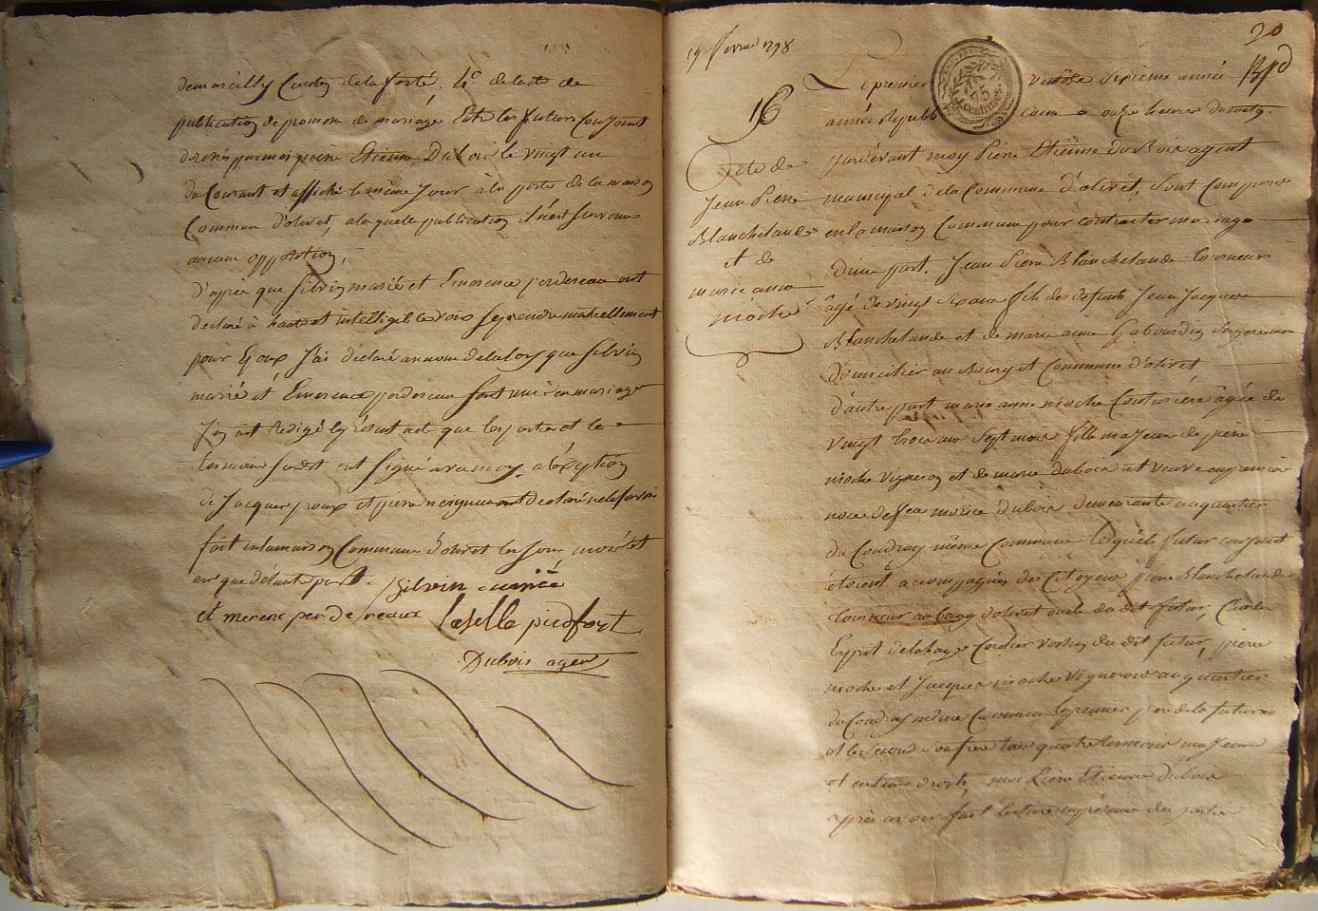 de marcilly Canton de la ferté, 4° de l'acte de
publication de promesse de mariage Entre les futurs Conjoints
dressé par moi pierre Etienne Dubois le vingt un
du Courant et affiché le même Jour à la porte de la maison
Commune d'olivet, a laquelle publication il n'est survenu
aucune opposition,
d'après que Silvin marié et Emerence perdereau ont
declaré à haute et intelligible voix se prendre mutuellement
pour Epoux J'ai déclaré au nom de la loy que Silvin
marié et Emerence perdereau sont unis en mariage
J'ay redigé le présent acte que les parties et les
temoins susdit ont signé avec moy, a l'exeption
de Jacques proux et pierre ont declaré ne le savoir
fait en la maison Commune d'olivet les Jour mois et
an que d'autre part. Silvin marié
Emerence perdereaux laselle piedfort
Dubois agent
19 fevrier 1798
20
16
Acte de
Jean Pierre
Blanchelande
et de
marie anne
nioche
Le premier ventôse sixieme année
année Republicaine onze heures du matin
pardevant moy Pierre Etienne Dubois agent
municipal de la Commune d'olivet, sont comparus
en la maison Commune pour contracter mariage
d'une part. Jean Pierre Blanchelande tonneur
âgé de vingt ans fils des defunts Jean Jacques
Blanchelande et de marie anne
domicilier au Bourg et Commune d'olivet
d'autre part marie anne nioche Couturière âgée de
vingt trois ans sept mois fille majeure de pierre
nioche vigneron et de marie dubois et veuve en premiere
noce de feu dubois demeurante au quartier
du Coudray même Commune lesquels futur conjoint
étoient accompagnés des Citoyens pierre Blanchelande
tonneur au bourg d'olivet oncle du dit futur, Charle
Esprit delahaye Cordier voisin du dit futur, pierre
nioche et Jacques nioche Vignerons au quartier
du Coudray même Commune le premier pere de la future
et le Second son frere tous quatre temoins majeurs
et moi Pierre Etienne dubois
après avoir fait lecture en présence des parties